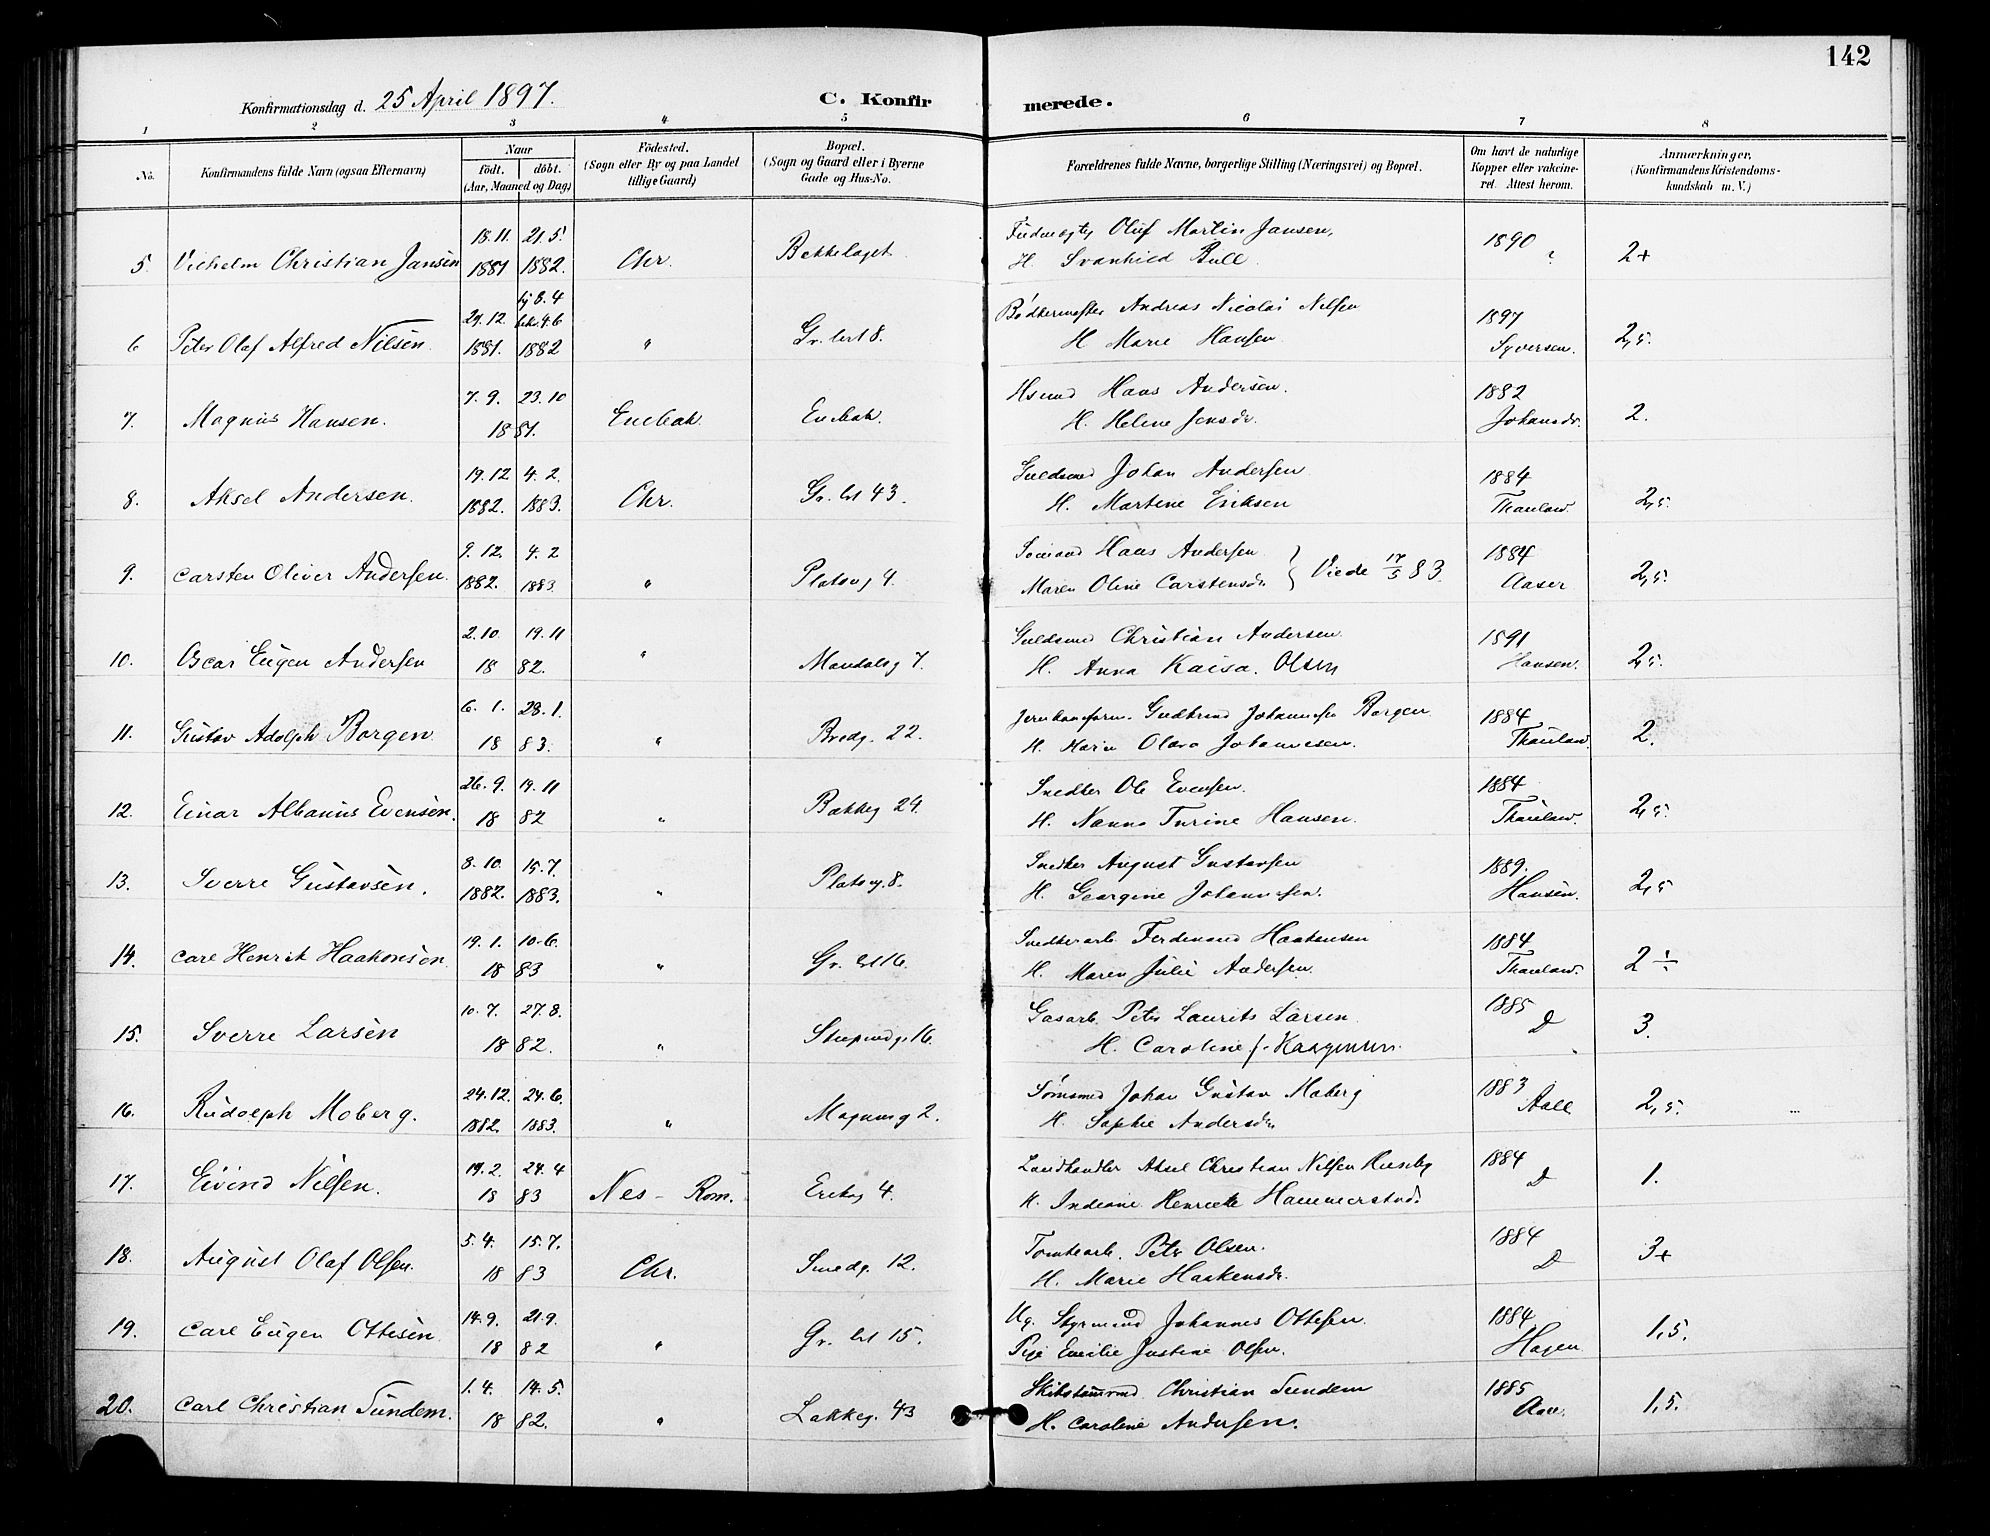 142
Konfirmationsdag d. 25 April 1897. C. Konfirmerede.
1 2 3 4 5 6 7 8
No. Konfirmandens fulde Navn (ogsaa Efternavn) Naar Födt. döbt. (Aar, Maaned og Dag) Födested. (Sogn eller By og paa Landet tillige Gaard) Bopæl. (Sogn og Gaard eller i Byerne Gade og Hus-No. Forældrenes fulde Navne, borgerlige Stilling (Næringsvei) og Bopæl. Om havt de naturlige Kopper eller vakcineret. Attest herom. Anmærkninger. (Konfirmandens Kristendomskundskab m. V.)
18.11. 21.5. Oluf Martin Jansen, 1890
5. Vilhelm Christian Jansen 1881 1882. Chr. Bekkelaget H. Svanhild Bull. 2+
hj 8.4
29.12. bek. 4.6 Bødkermester Andreas Nicolai Nilsen 1897
6 Peter Olaf Alfred Nilsen. 1881. 1882 " Gr. brt 8. H. Marie Hansen Syversen. 2,5.
7.9. 23.10 Hsmd Hans Andersen. 1882
7. Magnus Hansen. 1881. Enebak Enebak. H. Helene Jensdr. Johansdr. 2.
19.12 4.2. Guldsmd Johan Andersen 1884
8. Aksel Andersen. 1882. 1883. Chr. Gr. brt 43. H. Martine Eriksen Thaulow. 2,5.
9.12. 4.2 Sømand Hans Andersen 1884
9. Carsten Oliver Andersen. 1882. 1883. " Platovg 4. Maren Oline Carstensdr } Viede 17/5 83. Aaser 2,5.
2.10. 19.11 Guldsmd Christian Andersen. 1891
10. Oscar Eugen Andersen 1882. " Mandalsg 7. H. Anna Kaisa. Olsen Hansen. 2,5.
6.1. 28.1. Gudbrand Johannesen Borgen 1884
11. Gustav Adolph Borgen 1883. " Bredg. 22. H. Marie Olava Johannesen. Thaulow. 2.
26.9. 19.11 Snedker Ole Evensen. 1884
12. Einar Albanus Evensen. 1882 " Bakkeg 24. H. Nanna Turine Hansen. Thaulow. 2,5.
8.10. 15.7. Snedker August Gustavsen 1889.
13. Sverre Gustavsen. 1882. 1883. " Platovg. 8. H. Georgine Johannesen. Hansen. 2,5
19.1. 10.6. Snedkerarb. Ferdinand Haakensen 1884
14. Carl Henrik Haakonsen 1883 " Gr. brt 16. H. Maren Julie Andersen. Thaulow. 2 ÷
10.7. 27.8. Gasarb. Peter Laurits Larsen 1885
15. Sverre Larsen 1882. " 16. H. Caroline f. D 3.
24.12. 24.6. Johan Gustav Moberg 1883
16. Rudolph Moberg. 1882. 1883. " Magnusg 2. H. Sophie Andersdr Aall 2,5.
19.2. 24.4 Landhandler Aksel Christian Nilsen 1884
17. Eivind Nilsen. 1883 Nes - Rom. Eriksg 4. H. Indiane Henriette Hammerstad. D 1.
5.4. 15.7. Tomtearb. Peter Olsen. 1884
18. August Olaf Olsen. 1883 Chr. Smedg. 12. H. Marie Haakensdr. D 3+
14.9. 21.9. Ug. Styrmand Johannes Ottesen. 1884
19. Carl Eugen Ottesen 1882 " Gr. brt 15. Pige Emilie Justine Olsen. Hagen 1,5.
1.4. 14.5. Skibstømmd Christian Sundem 1885
20. Carl Christian Sundem. 1882. " Lakkeg. 43 H. Caroline Andersen. 1,5.